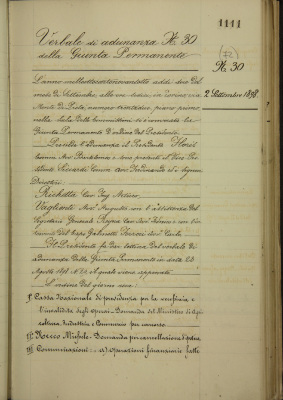 1111
Verbale di adunanza N. 30
della Giunta Permanente
(72)
N. 30
2 Settembre 1898
L'anno millottocentonovantotto addì due del
mese di Settembre alle ore in Torino via
Monte di Pietà numero trentadue, piano primo
nella Sala delle Commissioni si è convocata la
Giunta Permanente d'ordine del Presidente.
Presiede l'adunanza il Presidente
sono presenti il Vice Presi
dente Cav. Ferdinando ed i Signori
Direttori
Richetta Cav. Ing.
Vagliente Avv. Augusto con l'assistenza del
Segretario Generale Cav. Avv. e con l'in
tervento del Capo Gabinetto Carlo
Il Presidente fa dar lettura del verbale di
adunanza della Giunta Permanente in data 23
Agosto 1898 N. il quale viene approvato
L'ordine del giorno reca:
1° Cassa Nazionale di previdenza per la vecchiaia e
l'invalidità degli operai - Domanda del Ministero di Agri
coltura, Industria e Commercio per concorso
2° Rocco Michele - Domanda per cancellazione d'ipoteca
3° Comunicazione a) Operazioni finanziarie fatte